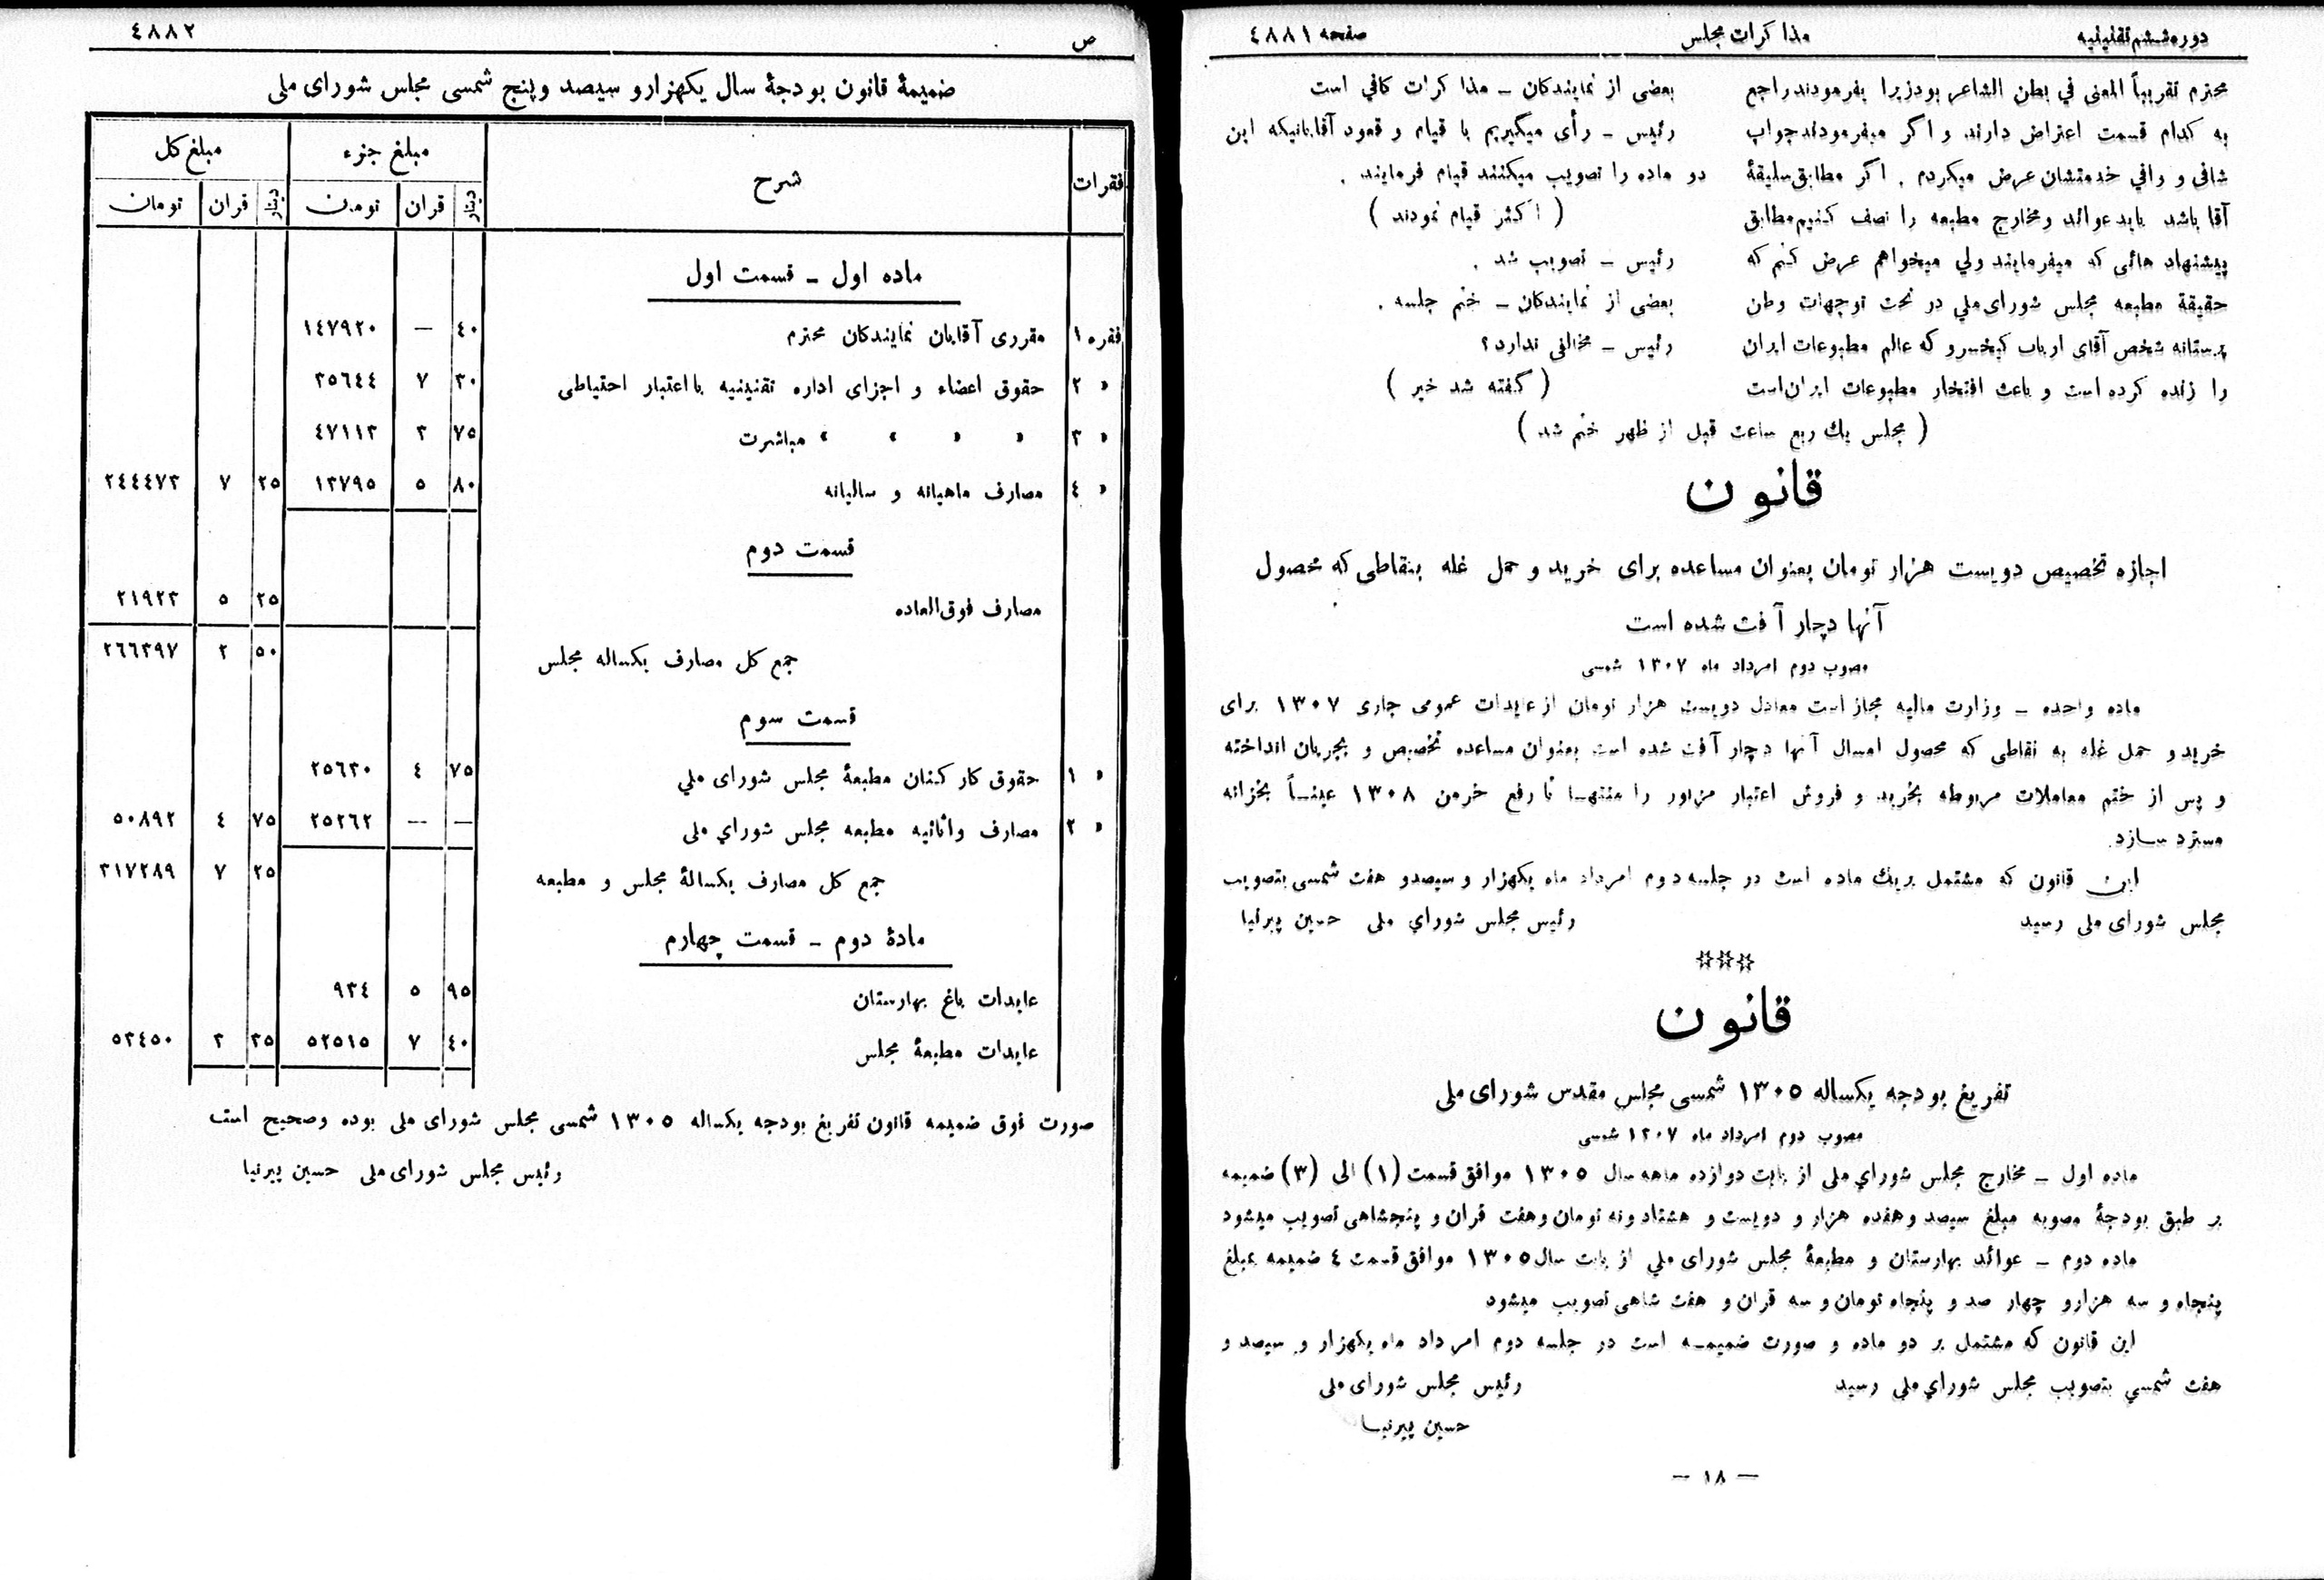 دوره ششم تقنینیه مذاکرات مجلس صفحه ٤٨٨١
محترم تقریباً المعنی في بطن الشاعر بود زیرا بفرمودند راجع
به کدام قسمت اعتراض دارند و اگر میفرمودند جواب
شافی و وافي خدمتشان عرض میکردم . اگر مطابق سلیقهٔ
آقا باشد باید عوائد و مخارج مطبعه را نصف کنیم مطابق
پیشنهاد هائی که میفرمایند ولي میخواهم عرض کنم که
حقیقة مطبعه مجلس شورای ملي در تحت توجهات وطن
پرستانه شخص آقای ارباب کیخسرو که عالم مطبوعات ایران
را زنده کرده است و باعث افتخار مطبوعات ایران است
بعضی از نمایندکان ــ مذاکرات کافي است
رئیس ــ رأی میگیریم با قیام و قعود آقایانیکه این
دو ماده را تصویب میکنند قیام فرمایند .
( اکثر قیام نمودند )
رئیس ــ تصویب شد .
بعضی از نمایندکان ــ ختم جلسه .
رئیس ــ مخالفی ندارد؟
( گفته شد خیر )
( مجلس یك ربع ساعت قبل از ظهر ختم شد )
قانون
اجازه تخصیص دویست هزار تومان بعنوان مساعده برای خرید و حمل غله بنقاطی که محصول
آنها دچار آفت شده است
مصوب دوم امرداد ماه ١٣٠٧ شمسی
ماده واحده ــ وزارت مالیه مجاز است معادل دویست هزار تومان از عایدات عمومی جاری ١٣٠٧ برای
خرید و حمل غله به نقاطی که محصول امسال آنها دچار آفت شده است بعنوان مساعده تخصیص و بجریان انداخته
و پس از ختم معاملات مربوطه بخرید و فروش اعتبار مزبور را منتهـا تا رفع خرمن ١٣٠٨ عینـاً بخزانه
مسترد سازد.
این قانون که مشتمل بریك ماده است در جلسه دوم امرداد ماه یکهزار و سیصدو هفت شمسی بتصویب
مجلس شورای ملی رسید رئیس مجلس شوراي ملی حسین پیرنیا
***
قانون
تفریغ بودجه یکساله ١٣٠٥ شمسی مجلس مقدس شورای ملی
مصوب دوم امرداد ماه ١٣٠٧ شمسی
ماده اول ــ مخارج مجلس شوراي ملی از بابت دوازده ماهه سال ١٣٠٥ موافق قسمت (١) الی (٣) ضمیمه
بر طبق بودجهٔ مصوبه مبلغ سیصد وهفده هزار و دویست و هشتاد ونه تومان وهفت قران و پنجشاهی تصویب میشود
ماده دوم ــ عوائد بهارستان و مطبعهٔ مجلس شورای ملي از بابت سال ١٣٠٥ موافق قسمت ٤ ضمیمه بمبلغ
پنجاه و سه هزارو چهار صد و پنجاه تومان و سه قران و هفت شاهی تصویب میشود
این قانون که مشتمل بر دو ماده و صورت ضمیمـه است در جلسه دوم امرداد ماه یکهزار و سیصد و
هفت شمسي بتصویب مجلس شوراي ملي رسید رئیس مجلس شورای ملی
حسین پیرنیـا
ــ ١٨ ــ
ص ٤٨٨٢
ضمیمهٔ قانون بودجهٔ سال یکهزارو سیصد وپنج شمسی مجلس شورای ملی
فقرات شرح مبلغ جزء مبلغ کل
دینار قران تومان دینار قران تومان
ماده اول ــ قسمت اول
فقره ١ مقرری آقایان نمایندکان محترم ٤٠ — ١٤٧٩٢٠
» ٢ حقوق اعضاء و اجزای اداره تقنینیه با اعتبار احتیاطی ٣٠ ٧ ٣٥٦٤٤
» ٣ » » » » مباشرت ٧٥ ٣ ٤٧١١٣
» ٤ مصارف ماهیانه و سالیانه ٨٠ ٥ ١٣٧٩٥ ٢٥ ٧ ٢٤٤٤٧٣
قسمت دوم
مصارف فوق‌العاده ٢٥ ٥ ٢١٩٢٣
جمع کل مصارف یکساله مجلس ٥٠ ٢ ٢٦٦٣٩٧
قسمت سوم
» ١ حقوق کارکنان مطبعهٔ مجلس شورای ملي ٧٥ ٤ ٢٥٦٣٠
» ٢ مصارف واثاثیه مطبعه مجلس شوراي ملی — — ٢٥٢٦٢ ٧٥ ٤ ٥٠٨٩٢
جمع کل مصارف یکسالهٔ مجلس و مطبعه ٢٥ ٧ ٣١٧٢٨٩
مادهٔ دوم ــ قسمت چهارم
عایدات باغ بهارستان ٩٥ ٥ ٩٣٤
عایدات مطبعهٔ مجلس ٤٠ ٧ ٥٢٥١٥ ٣٥ ٣ ٥٣٤٥٠
صورت فوق ضمیمه قانون تفریغ بودجه یکساله ١٣٠٥ شمسی مجلس شورای ملی بوده وصحیح است
رئیس مجلس شورای ملی حسین پیرنیا